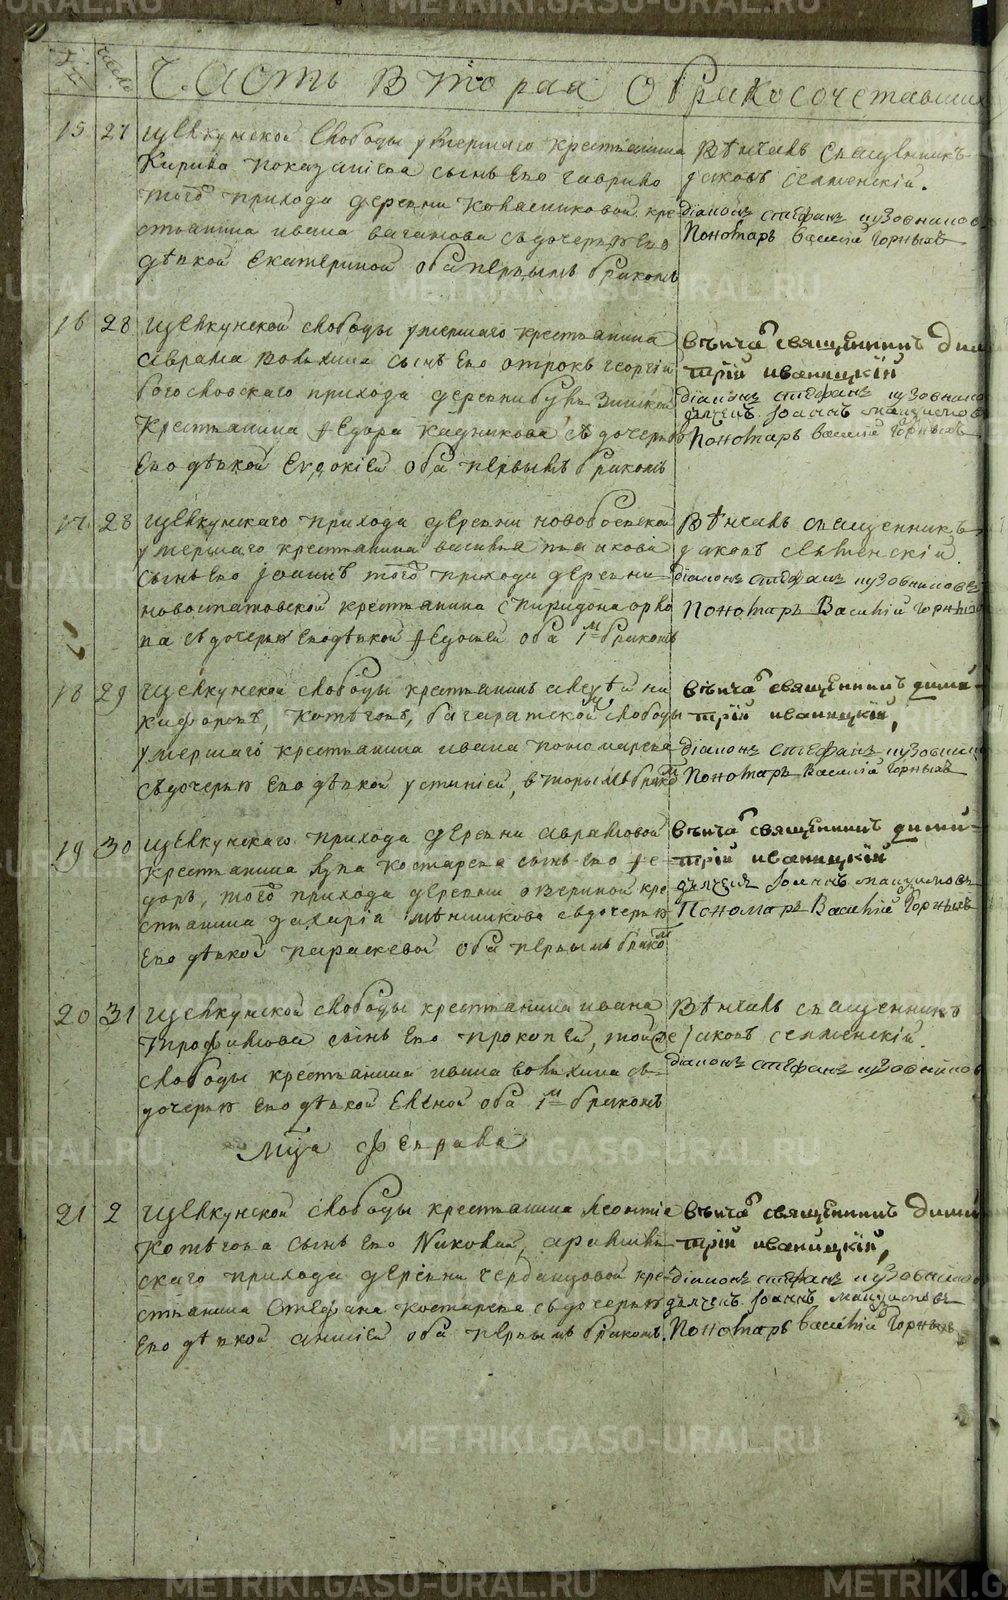 METRIKI.GASO-URAL.RU
Число
Часть Вторая О бракосочетавшихся
15 27 Щелкунской слободы умершаго крестьянина
Кирила сынъ его гаврило
того прихода деревни кре
стьянина ивана ваганова съ дочерью его
дѣвкой Екатериной оба первымъ бракомъ
Вѣнчалъ священникъ
Иаковъ селменскій.
діаконъ стефанъ пузовниковъ
Пономарь василій Горныхъ
16 28 Щелкунской слободы умершаго крестьянина
Аврама волхина сынъ его отрокъ георгій
богословскаго прихода деревни
Крестьянина федора кадникова съ дочерью
его дѣвкой Евдокіей оба первымъ бракомъ
вѣнчалъ священникъ дими
трій иваницкій
діаконъ стефанъ пузовнико
дьячекъ Іоаннъ
Пономарь василій Горныхъ
17 28 Щелкунскаго прихода деревни новоосенской
умершаго крестьянина василья
сынъ его Іоаннъ того прихода деревни
новоипатовской крестьянина спиридона орло
ва съ дочерью его дѣвкой федосьей оба 1м бракомъ
Вѣнчалъ священникъ
Иаковъ селменскій
діаконъ стефанъ пузовниковъ
Пономарь Василій Горныхъ
18 29 Щелкунской слободы крестьянинъ алексѣй ни
кифоровъ, котѣговъ, багарятской слободы
умершаго крестьянина ивана пономарева
съ дочерью его дѣвкой устиніей, вторымъ бракомъ
вѣнчалъ священникъ дими
трій иваницкій,
діаконъ стефанъ пузовнико
Пономарь Василій Горныхъ
19 30 Щелкунскаго прихода деревни аврамовой
крестьянина лупа костарева сынъ его фе
доръ, того прихода деревни озериной кре
стьянина захарія мѣншикова съ дочерью
его дѣвкой параскевой оба первымъ бракомъ
вѣнчалъ священникъ дими
трій иваницкій
дьячекъ Іоаннъ
Пономарь Василій Горныхъ
20 31 Щелкунской слободы крестьянина ивана
трофимова сынъ его прокопей, той же
слободы крестьянина ивана волхина съ
дочерью его дѣвкой Еленой оба 1м бракомъ
Вѣнчалъ священникъ
Иаковъ селменскій.
діаконъ стефанъ пузовниковъ
Мца Февраля
21 2 Щелкунской слободы крестьянина леонтіе
котѣгова сынъ его Николай, арамиль
скаго прихода деревни кре
стьянина Стефана костарева съ дочерью
его дѣвкой анисіей оба первымъ бракомъ.
вѣнчалъ священникъ дими
трій иваницкій,
діаконъ стефанъ пузовников
дьячекъ Іоаннъ
Пономарь василій Горныхъ